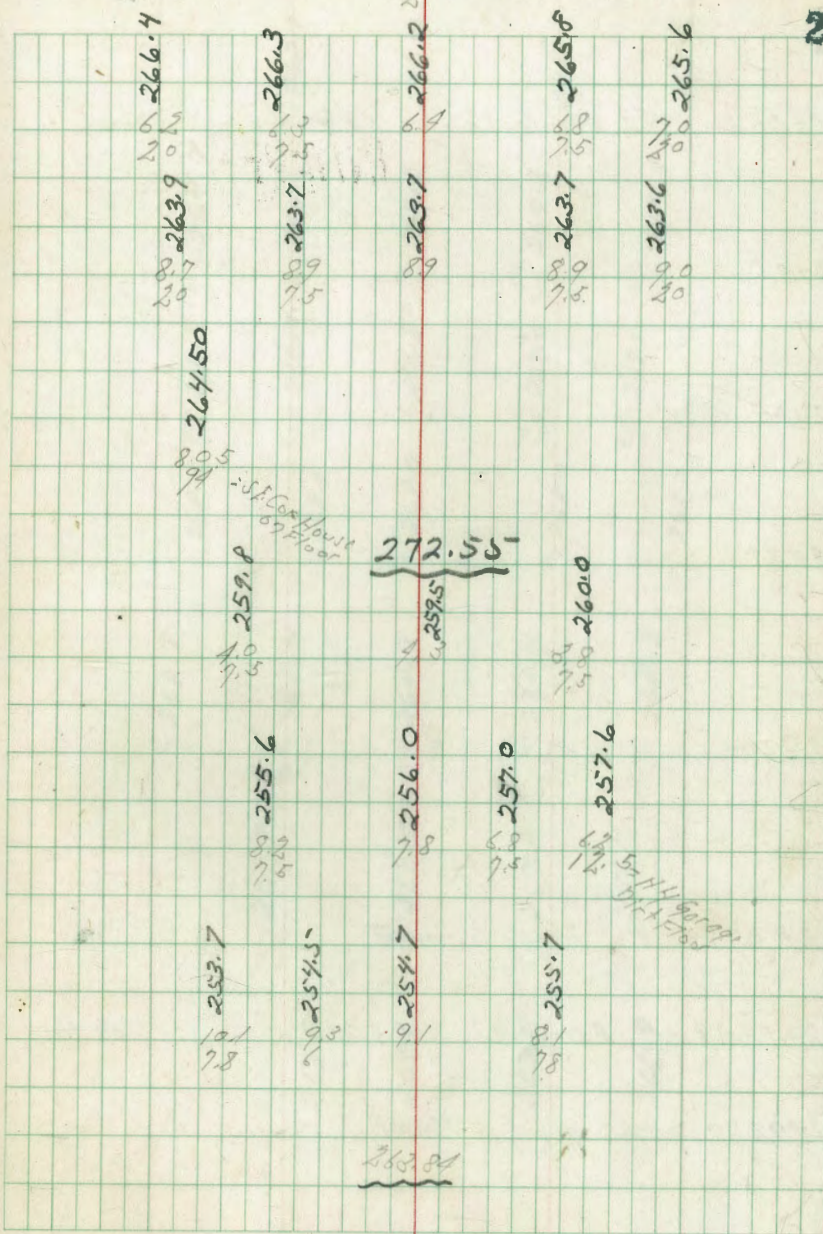 266.4 266.3 266.2 265.8 265.6
6.2 6.3 6.4 6.8 7.0
20 7.5 7.5 20
263.9 263.7 263.7 263.7 263.6
8.7 8.9 8.9 8.9 9.0
20 7.5 7.5 20
264.50
8.05
94 = S.E. Cor House
on Floor
272.55
259.8 259.5 260.0
4.0 4.3 3.8
7.5 7.5
255.6 256.0 257.0 257.6
8.2 7.8 6.8 6.2
7.5 7.5 12.5 =
Dirt Floor
253.7 254.5 254.7 255.7
10.1 9.3 9.1 8.1
7.8 6 78
263.84